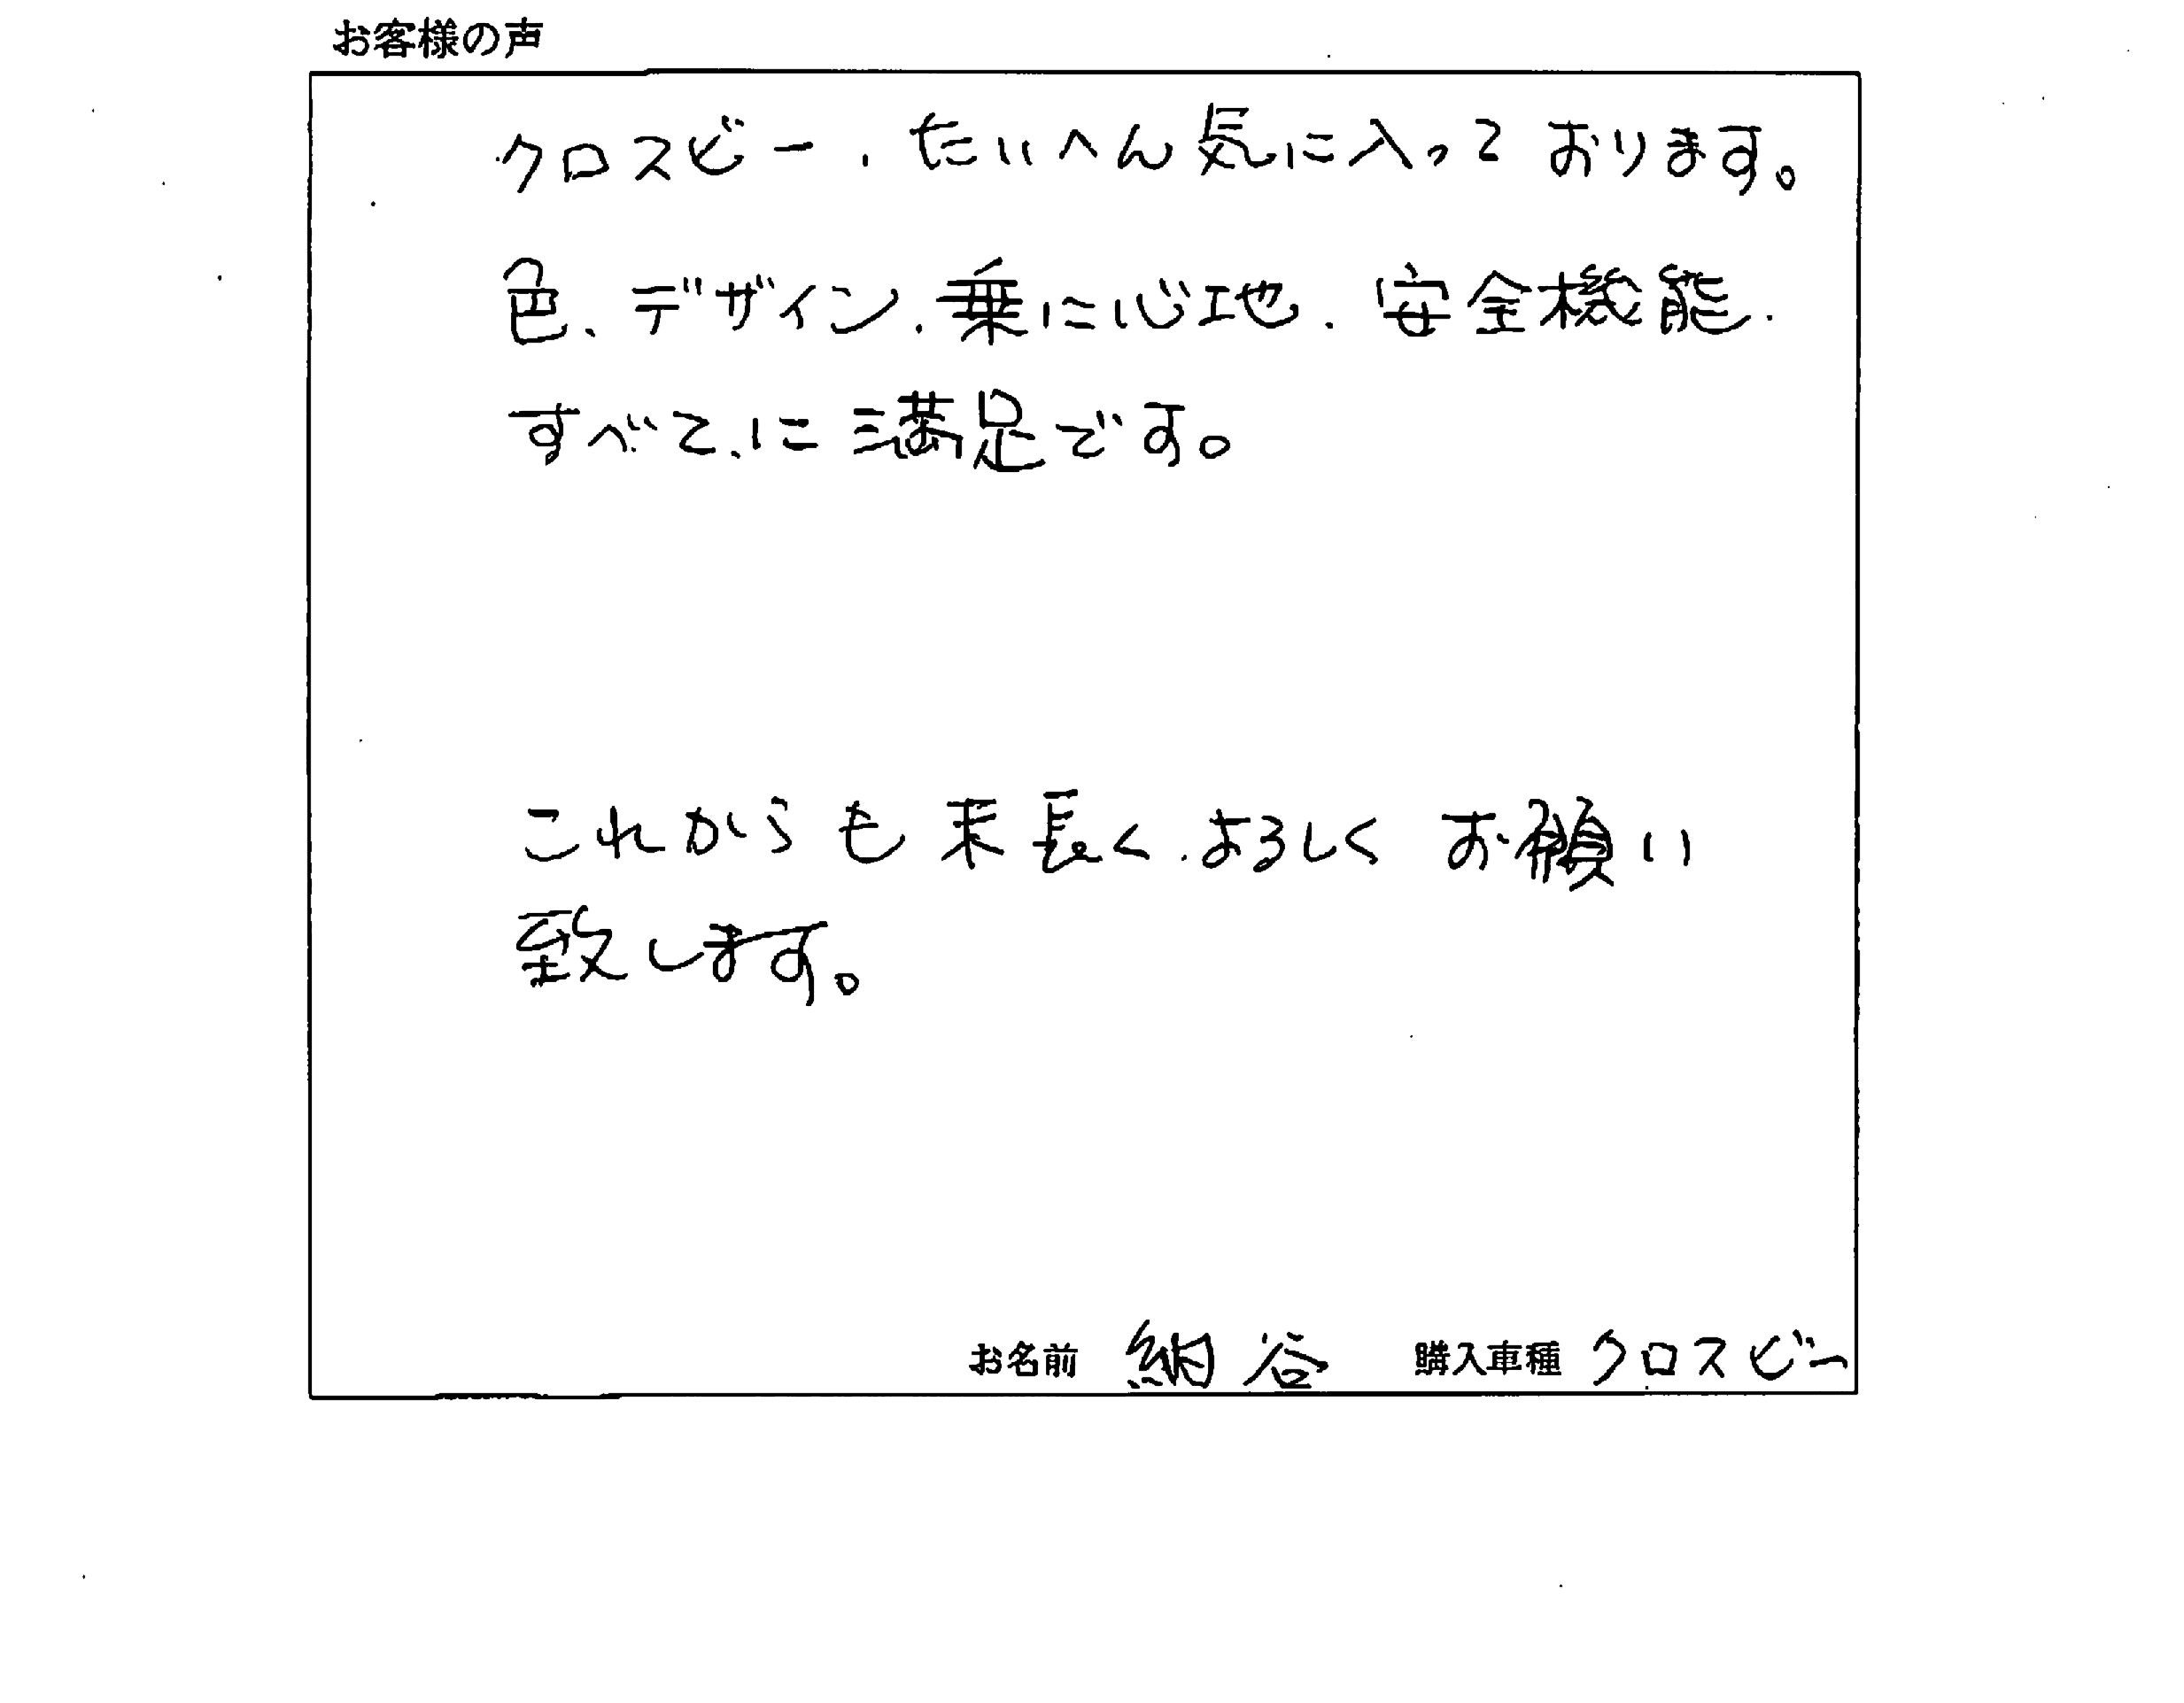 お客様の声
クロスビー、たいへん気に入っております。
色、デザイン、乗に心地、安全機能、
すべてに満足です。
これからも末長く、よろしくお願い
致します。
お名前 納谷 購入車種 クロスビー